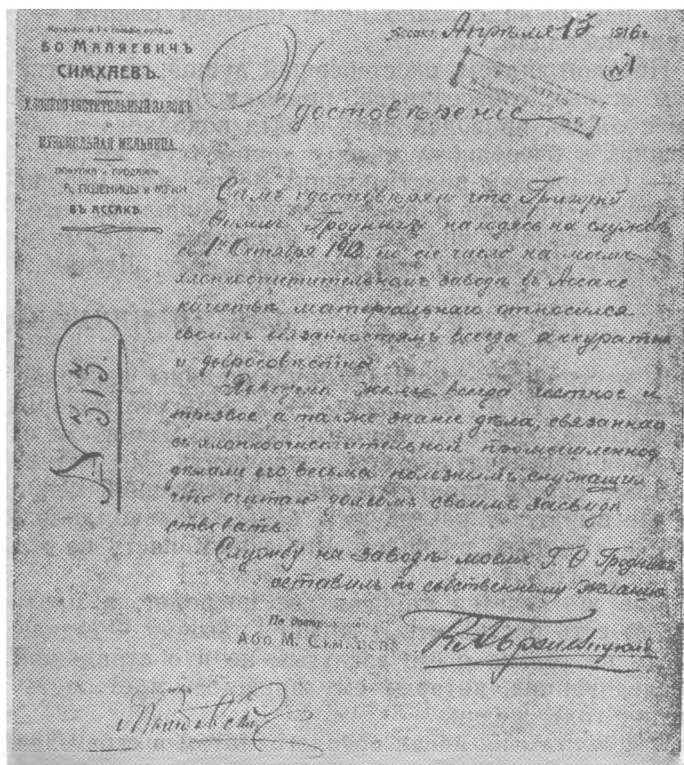 БО МАЛЯЕВИЧЪ
СИМХАЕВЪ.
ХЛОПКООЧИСТИТЕЛЬНЫЙ ЗАВОДЪ
И
МУКОМОЛЬНАЯ МЕЛЬНИЦА.
ПОКУПКА и ПРОДАЖА
ПШЕНИЦЫ и МУКИ
ВЪ АССАКѢ.
Ассакѣ Апрѣля 13 1916 г.
№1
Удостовѣренiе
Симъ удостовѣряю что Григорій
Гродницкі находясь на службѣ
съ 1го Октября 1912 по сіе число на моемъ
хлопкоочистительномъ заводѣ въ Ассаке
качествѣ матеріальнаго относился
своимъ обязанностямъ всегда аккуратно
и добросовѣстно.
всегда честное и
трезвое, а также знаніе дѣла, связанная
съ хлопкоочистительной промышленнос
дѣлали его весьма полезнымъ служащим
что считаю долгомъ своимъ засвидѣ
ствовать.
Службу на заводѣ моемъ Г. О. Гродницк
оставилъ по собственному желанію
По довѣр
Або М. Сим
№ 313.